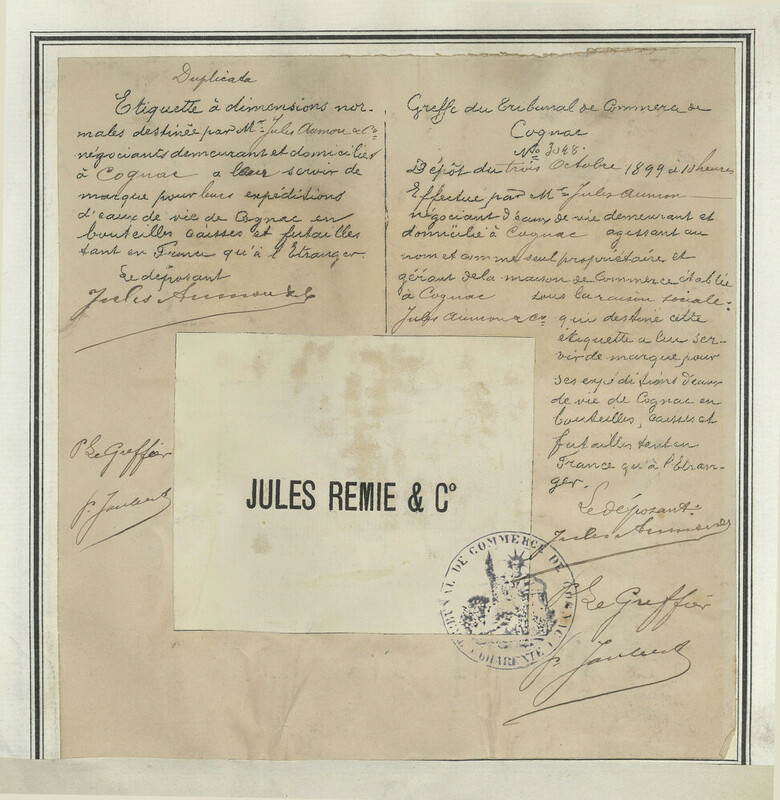 Duplicata
Etiquette à dimensions nor-
males destinée par Mr. Jules Aumon & Co
négociants demeurant et domiciliés
à Cognac a leur servir de
marque pour leurs expéditions
d'eaux de vie de Cognac en
bouteilles caisses et futailles
tant en France qu'à l'Etranger.
Le déposant
Jules Aumon & Co
P Le Greffier
P. Jaubert
Greffe du Tribunal de Commerce de
Cognac
No 3048.
Dépôt du trois Octobre 1899 à 10 heures
Effectué par Mr Jules Aumon
négociant d'eaux de vie demeurant et
domicilié à Cognac agissant au
nom et comme seul propriétaire et
gérant de la maison de Commerce établie
à Cognac sous la raison sociale:
Jules Aumon & Co qui destine cette
étiquette a lui ser-
vir de marque pour
ses expéditions d'eaux
de vie de Cognac en
bouteilles, caisses et
futailles tant en
France qu'à l'Etran-
ger.
Le déposant:
Jules Aumon & Co
P Le Greffier
P. Jaubert
JULES REMIE & Co
TRIBUNAL DE COMMERCE DE COGNAC
CHARENTE